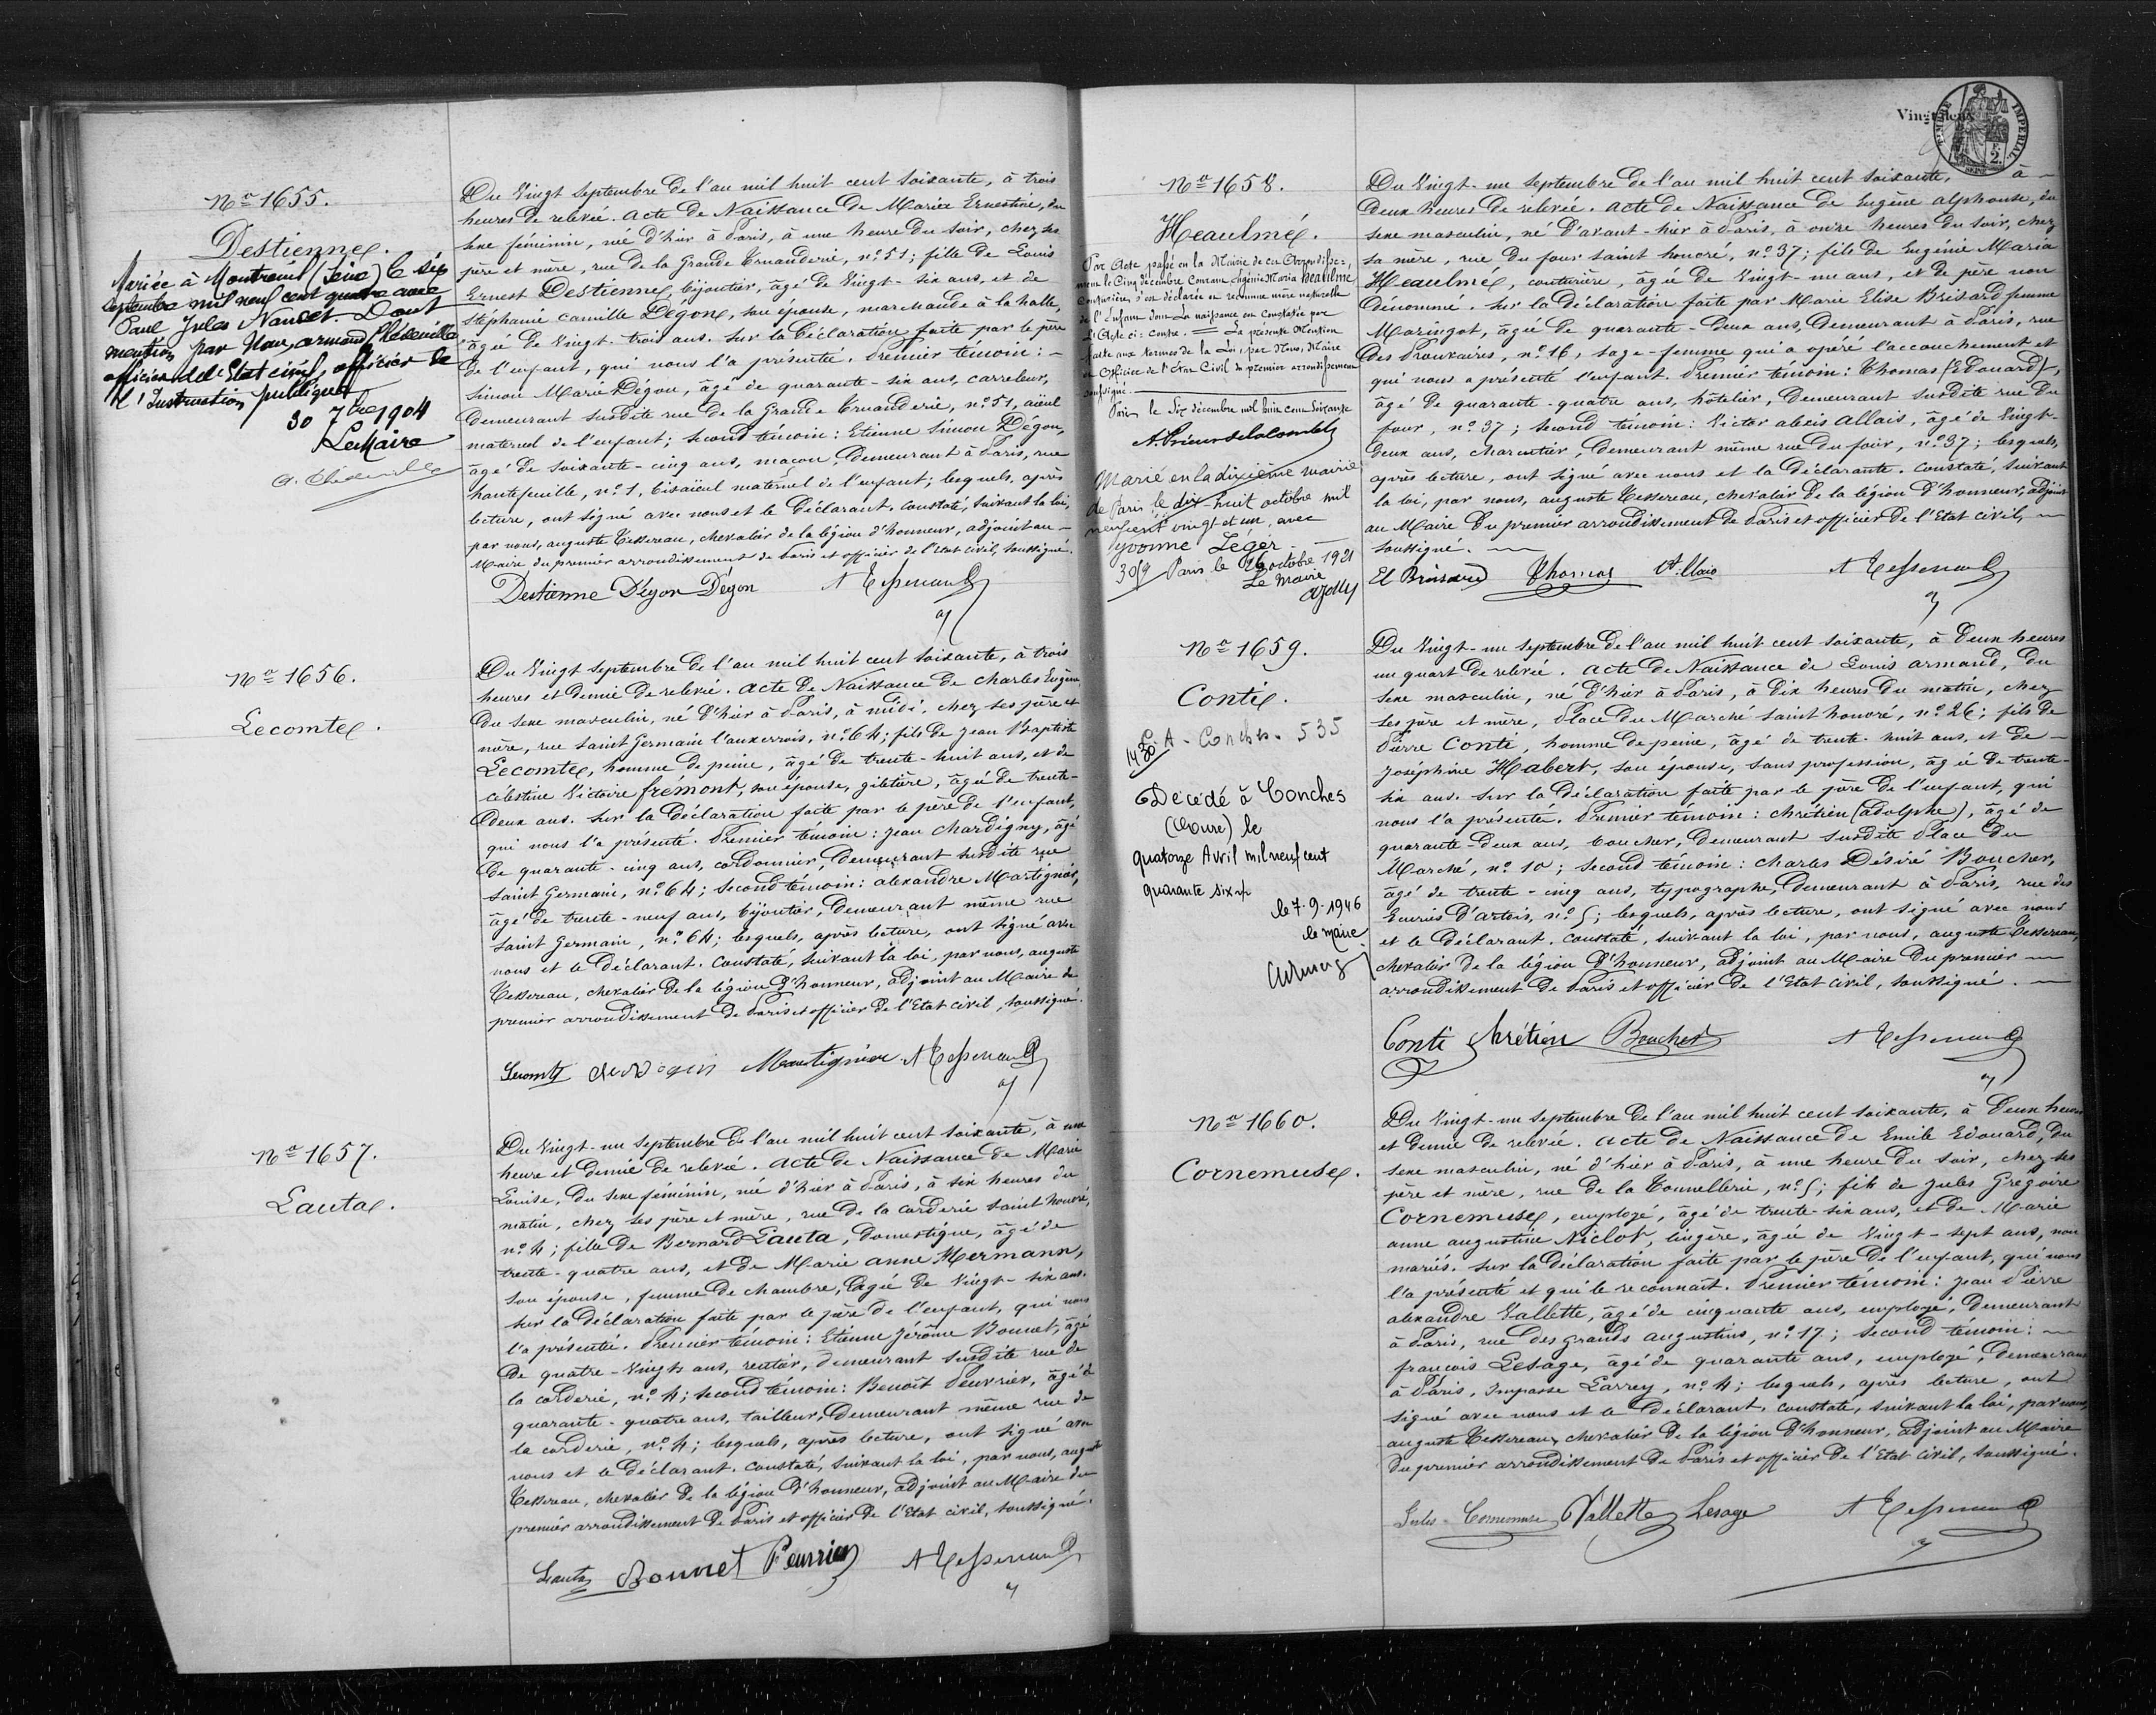 No 1655.
Destienne.
Mariée à Montreuil (Seine) le dix
septembre mil neuf cent quatre avec
Paul Jules Nanset. Dont
mention par Nous, armand
officier de l'Etat civil, officier de
l'Instruction publique
30 7bre 1904
Le Maire
Du Vingt septembre de l'an mil huit cent soixante, à trois
heures de relevée. Acte de Naissance de Maria Ernestine, du
sexe féminin, née d'hier à Paris, à une heure du soir, chez ses
père et mère, rue de la Grande Truanderie, no 51; fille de Louis
Ernest Destienne, bijoutier, âgé de Vingt-six ans, et de
Stéphanie Camille Dégon, son épouse, marchande à la halle,
âgée de Vingt-trois ans. Sur la déclaration faite par le père
de l'enfant, qui nous l'a présentée. Premier témoin: -
Simon Marie Dégon, âgé de quarante-six ans, carreleur,
demeurant susdite rue de la Grande Truanderie, no 51, aïeul
maternel de l'enfant; second témoin: Etienne Simon Dégon,
âgé de soixante-cinq ans, maçon, demeurant à Paris, rue
hautefeuille, no 1, bisaïeul maternel de l'enfant; lesquels, après
lecture, ont signé avec nous et le déclarant. Constaté, suivant la loi,
par nous, auguste Tessereau, chevalier de la légion d'honneur, adjoint au -
Maire du premier arrondissement de Paris et officier de l'Etat civil, soussigné.
Destienne Dégon Dégon A Tessereau
No 1656.
Lecomte.
Du Vingt septembre de l'an mil huit cent soixante, à trois
heures et demie de relevée. Acte de Naissance de Charles Eugène,
du sexe masculin, né d'hier à Paris, à midi, chez ses père et
mère, rue Saint Germain l'auxerrois, no 64; fils de Jean Baptiste
Lecomte, homme de peine, âgé de trente-huit ans, et de
Célestine Victoire frémont, son épouse, giletière, âgée de trente-
deux ans. Sur la déclaration faite par le père de l'enfant,
qui nous l'a présenté. Premier témoin: Jean Chardigny, âgé
de quarante-cinq ans, cordonnier, demeurant susdite rue
Saint Germain, no 64; second témoin: alexandre Martignon,
âgé de trente-neuf ans, bijoutier, demeurant même rue
Saint Germain, no 64; lesquels, après lecture, ont signé avec
nous et le déclarant. Constaté, suivant la loi, par nous, auguste
Tessereau, chevalier de la légion d'honneur, adjoint au Maire du
premier arrondissement de Paris et officier de l'Etat civil, soussigné.
Lecomte Martignon A Tessereau
No 1657.
Lauta.
Du Vingt-un septembre de l'an mil huit cent soixante, à une
heure et demie de relevée. Acte de Naissance de Marie
Louise, du sexe féminin, née d'hier à Paris, à six heures du
matin, chez ses père et mère, rue de la corderie Saint honoré,
no 4; fille de Bernard Lauta, domestique, âgé de
trente-quatre ans, et de Marie anne Hermann,
son épouse, femme de chambre, âgée de Vingt-six ans.
Sur la déclaration faite par le père de l'enfant, qui nous
l'a présentée. Premier témoin: Etienne Jérôme Bonnet, âgé
de quatre-Vingts ans, rentier, demeurant susdite rue de
la corderie, no 4; second témoin: Benoît Peurrier, âgé de
quarante-quatre ans, tailleur, demeurant même rue de
la corderie, no 4; lesquels, après lecture, ont signé avec
nous et le déclarant. Constaté, suivant la loi, par nous, auguste
Tessereau, chevalier de la légion d'honneur, adjoint au Maire du
premier arrondissement de Paris et officier de l'Etat civil, soussigné.
Lauta Bonnet Peurrier A Tessereau
Vingt-deux
TIMBRE IMPERIAL
2.
SEINE
No 1658.
Heaulmé.
Par Acte passé en la Mairie de cet Arrondisse-
ment le Cinq décembre courant Eugénie Maria Heaulmé
Couturière, s'est déclarée et reconnue mère naturelle
de l'Enfant dont la naissance est constatée par
l'Acte ci-contre. = La présente Mention
faite aux termes de la Loi, par Nous, Maire
et Officier de l'Etat Civil du premier arrondissement
soussigné.
Paris le Six décembre mil huit cent soixante
Marié en la dixième mairie
de Paris le dix-huit octobre mil
neuf cent vingt et un, avec
Yvonne Léger
3019 Paris le 26 octobre 1921
Le Maire
Du Vingt-un Septembre de l'an mil huit cent soixante, à -
deux heures de relevée. Acte de Naissance de Eugène alphonse, du
sexe masculin, né d'avant-hier à Paris, à onze heures du soir, chez
sa mère, rue du four saint honoré, no 37; fils de Eugénie Maria
Heaulmé, couturière, âgée de Vingt-un ans, et de père non
dénommé. Sur la déclaration faite par Marie Elise Brisard femme
Maringot, âgée de quarante-deux ans, demeurant à Paris, rue
des Prouvaires, no 16, sage-femme qui a opéré l'accouchement et
qui nous a présenté l'enfant. Premier témoin: Thomas (Edouard),
âgé de quarante-quatre ans, hôtelier, demeurant susdite rue du
four, no 37; second témoin: Victor alexis Allais, âgé de Vingt-
deux ans, charcutier, demeurant même rue du four, no 37; lesquels,
après lecture, ont signé avec nous et la déclarante. Constaté, suivant
la loi, par nous, auguste Tessereau, chevalier de la légion d'honneur, adjoint
au Maire du premier arrondissement de Paris et officier de l'Etat civil,
soussigné.
El Brisard Thomas A Tessereau
No 1659.
Conti.
A - Conches - 535
Décédé à Conches
(Eure) le
quatorze Avril mil neuf cent
quarante six
le 7-9-1946
le maire
Du Vingt-un septembre de l'an mil huit cent soixante, à deux heures
un quart de relevée. Acte de Naissance de Louis armand, du
sexe masculin, né d'hier à Paris, à dix heures du matin, chez
ses père et mère, Place du Marché saint honoré, no 26; fils de
Pierre Conti, homme de peine, âgé de trente-huit ans, et de -
Joséphine Habert, son épouse, sans profession, âgée de trente-
six ans. Sur la déclaration faite par le père de l'enfant, qui
nous l'a présenté. Premier témoin: Chrétien (adolphe), âgé de
quarante-deux ans, boucher, demeurant susdite Place du
Marché, no 10; second témoin: Charles Désiré Boucher,
âgé de trente-cinq ans, typographe, demeurant à Paris, rue des
Ecuries d'artois, no 5; lesquels, après lecture, ont signé avec nous
et le déclarant. Constaté, suivant la loi, par nous, auguste Tessereau,
chevalier de la légion d'honneur, adjoint au Maire du premier
arrondissement de Paris et officier de l'Etat civil, soussigné.
Conti Chrétien Boucher A Tessereau
No 1660.
Cornemuse.
Du Vingt-un septembre de l'an mil huit cent soixante, à deux heures
et demie de relevée. Acte de Naissance de Emile Edouard, du
sexe masculin, né d'hier à Paris, à une heure du soir, chez ses
père et mère, rue de la Tonnellerie, no 5; fils de Jules Grégoire
Cornemuse, employé, âgé de trente-six ans, et de Marie
anne augustine Niclot, lingère, âgée de Vingt-sept ans, non
mariés. Sur la déclaration faite par le père de l'enfant, qui nous
l'a présenté et qui le reconnaît. Premier témoin: Jean Pierre
alexandre Vallette, âgé de cinquante ans, employé, demeurant
à Paris, rue des grands augustins, no 17; second témoin:
françois Lesage, âgé de quarante ans, employé, demeurant
à Paris, Impasse Larrey, no 4; lesquels, après lecture, ont
signé avec nous et le déclarant. Constaté, suivant la loi, par nous,
auguste Tessereau, chevalier de la légion d'honneur, adjoint au Maire
du premier arrondissement de Paris et officier de l'Etat civil, soussigné.
Jules Cornemuse Vallette Lesage A Tessereau